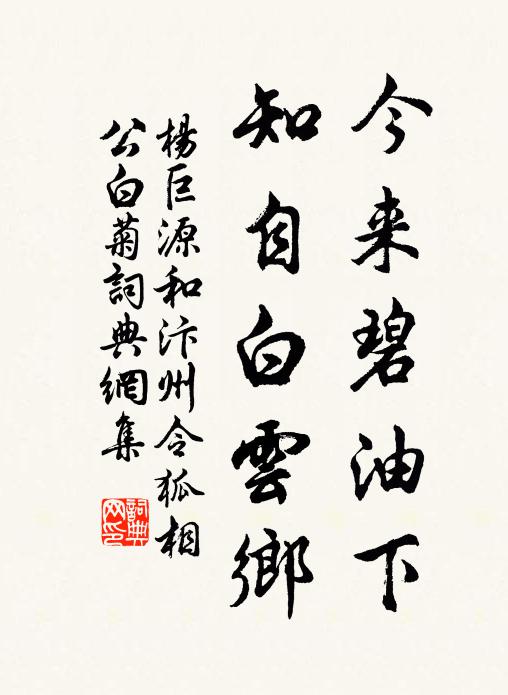 今来碧油下
知自白雲鄉
楊巨源和汴州令狐相
公白菊詞典網集
詞典
网印